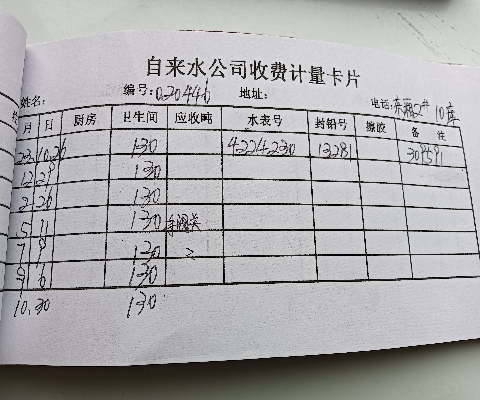 自来水公司收费计量卡片
姓名: 编号: 020446 地址: 电话: 东 2# 10库
月 日 厨房 卫生间 应收吨 水表号 封铅号 橡胶 备 注
22.10.26 130 4224230 13281
12 29 130
2 26 130
5 11 130
7 9 130 2
9 6 130
10.30 130